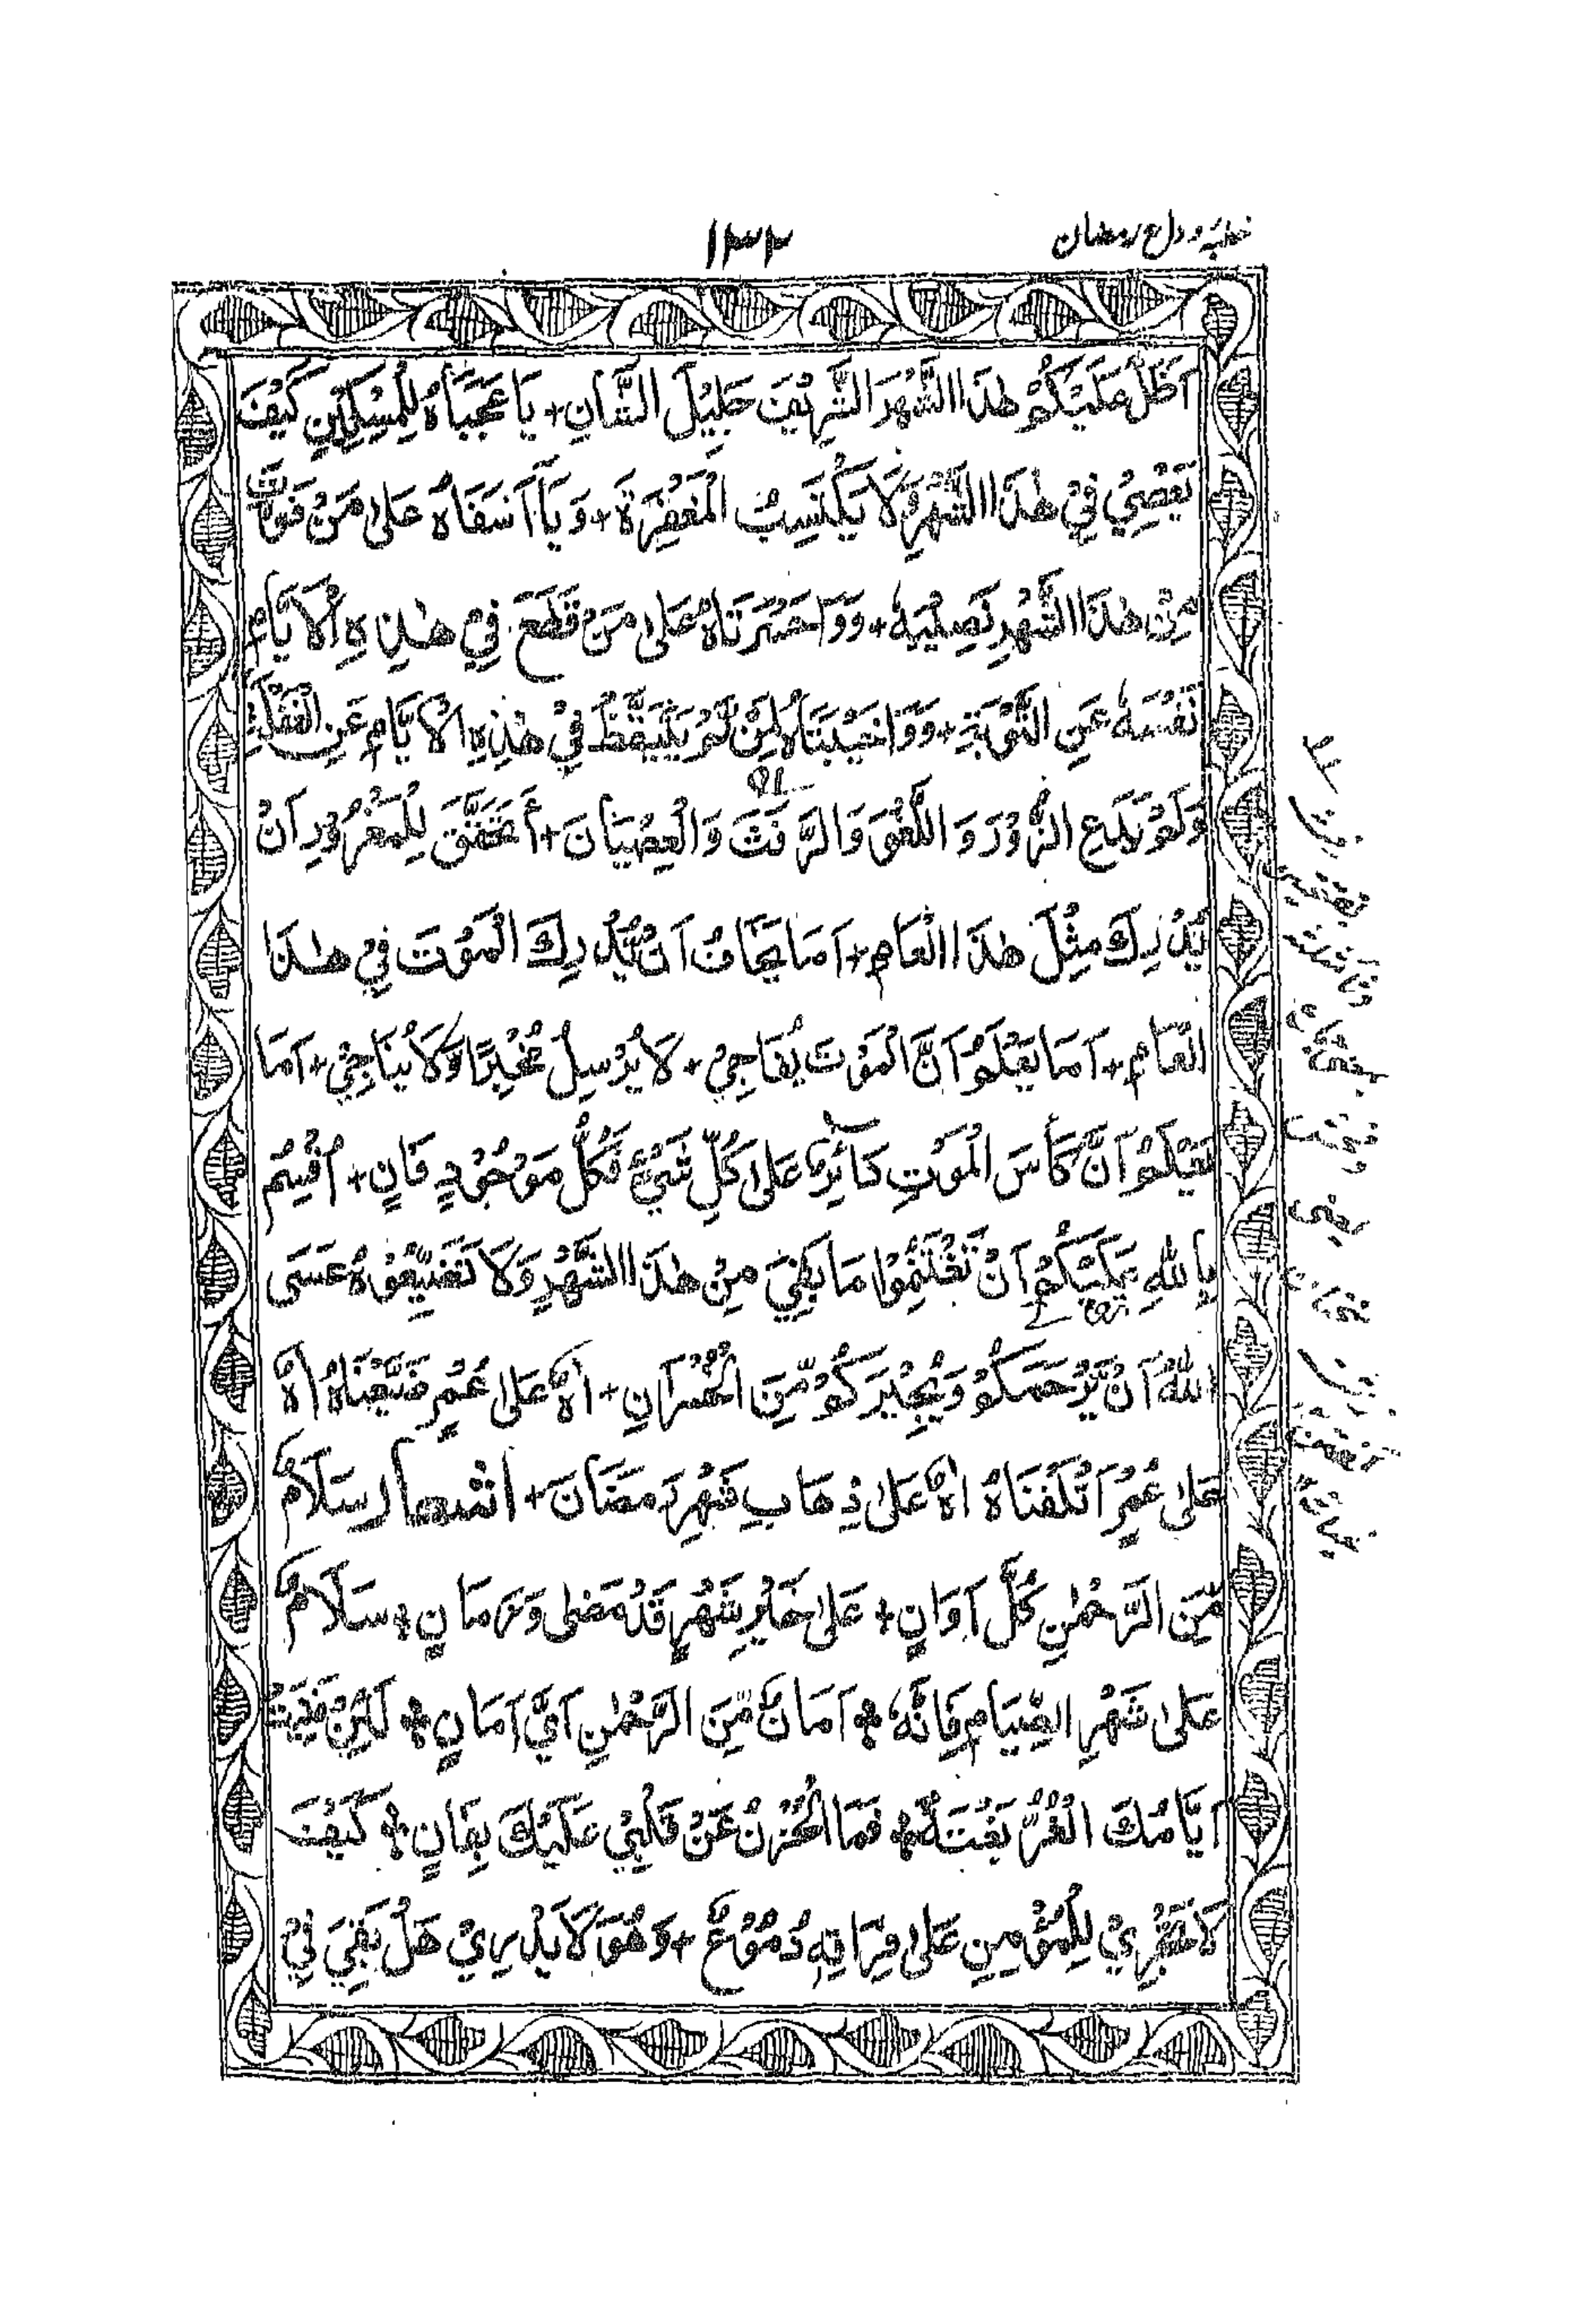 خطبہ وداع رمضان
۱۳۲
اَظَلَّ عَلَيْكُمْ هٰذَا الشَّهْرَ الشَّرِيْفَ جَلِيْلَ الشَّانِ + يَا عَجَبَاهُ لِلْمِسْكِيْنِ كَيْفَ
يَعْصِيْ فِيْ هٰذَا الشَّهْرِ وَلَا يَكْتَسِبُ الْمَغْفِرَةَ + وَيَا اَسَفَاهُ عَلٰى مَنْ فَوَّتَ
مِنْ هٰذَا الشَّهْرِ نَصِيْبَهٗ + وَوَاحَسْرَتَاهُ عَلٰى مَنْ قَطَعَ فِيْ هٰذِهِ الْاَيَّامِ
نَفْسَهٗ عَنِ التَّوْبَةِ + وَوَاخَيْبَتَاهُ لِمَنْ لَّمْ يَتَيَقَّظْ فِيْ هٰذِهِ الْاَيَّامِ عَنِ الْغَفْلَةِ
وَلَمْ يَدَعِ الزُّوْرَ وَ اللَّغْوَ وَالرَّفَثَ وَالْعِصْيَانَ + أَتَحَقَّقَ لِلْمَغْرُوْرِ اَنْ
يُّدْرِكَ مِثْلَ هٰذَا الْعَامِ + اَمَا يَخَافُ اَنْ يُّدْرِكَ الْمَوْتَ فِيْ هٰذَا
الْعَامِ + اَمَا يَعْلَمُ اَنَّ الْمَوْتَ يُفَاجِيْ + لَا يُرْسِلُ مُخْبِرًا وَّلَا يُنَاجِيْ + اَمَا
يَعْلَمُ اَنَّ كَأْسَ الْمَوْتِ دَائِرٌ عَلٰى كُلِّ شَيْءٍ فَكُلُّ مَوْجُوْدٍ فَانٍ + اُقْسِمُ
بِاللهِ عَلَيْكُمْ اَنْ تَغْتَنِمُوْا مَا بَقِيَ مِنْ هٰذَا الشَّهْرِ وَلَا تُضَيِّعُوْهُ عَسَى
اللهُ اَنْ يَّرْحَمَكُمْ وَيُجِيْرَكُمْ مِّنَ الْخُسْرَانِ + اٰهْ عَلٰى عُمُرٍ ضَيَّعْنَاهُ اٰهْ
عَلٰى عُمُرٍ اَتْلَفْنَاهُ اٰهْ عَلٰى ذِهَابِ شَهْرِ رَمَضَانَ + اشعار سَلَامٌ
مِّنَ الرَّحْمٰنِ كُلَّ اَوَانٍ + عَلٰى خَيْرِ شَهْرٍ قَدْ مَضٰى وَزَمَانٍ + سَلَامٌ
عَلٰى شَهْرِ الصِّيَامِ فَاِنَّهٗ + اَمَانٌ مِّنَ الرَّحْمٰنِ اَيُّ اَمَانٍ + لَئِنْ فَنِيَتْ
اَيَّامُكَ الْغُرُّ بَغْتَةً + فَمَا الْحُزْنُ عَنْ قَلْبِيْ عَلَيْكَ بِفَانٍ + كَيْفَ
لَا تَجْرِيْ لِلْمُؤْمِنِ عَلٰى فِرَاقِهِ دُمُوْعٌ + وَهُوَ لَا يَدْرِيْ هَلْ بَقِيَ فِيْ